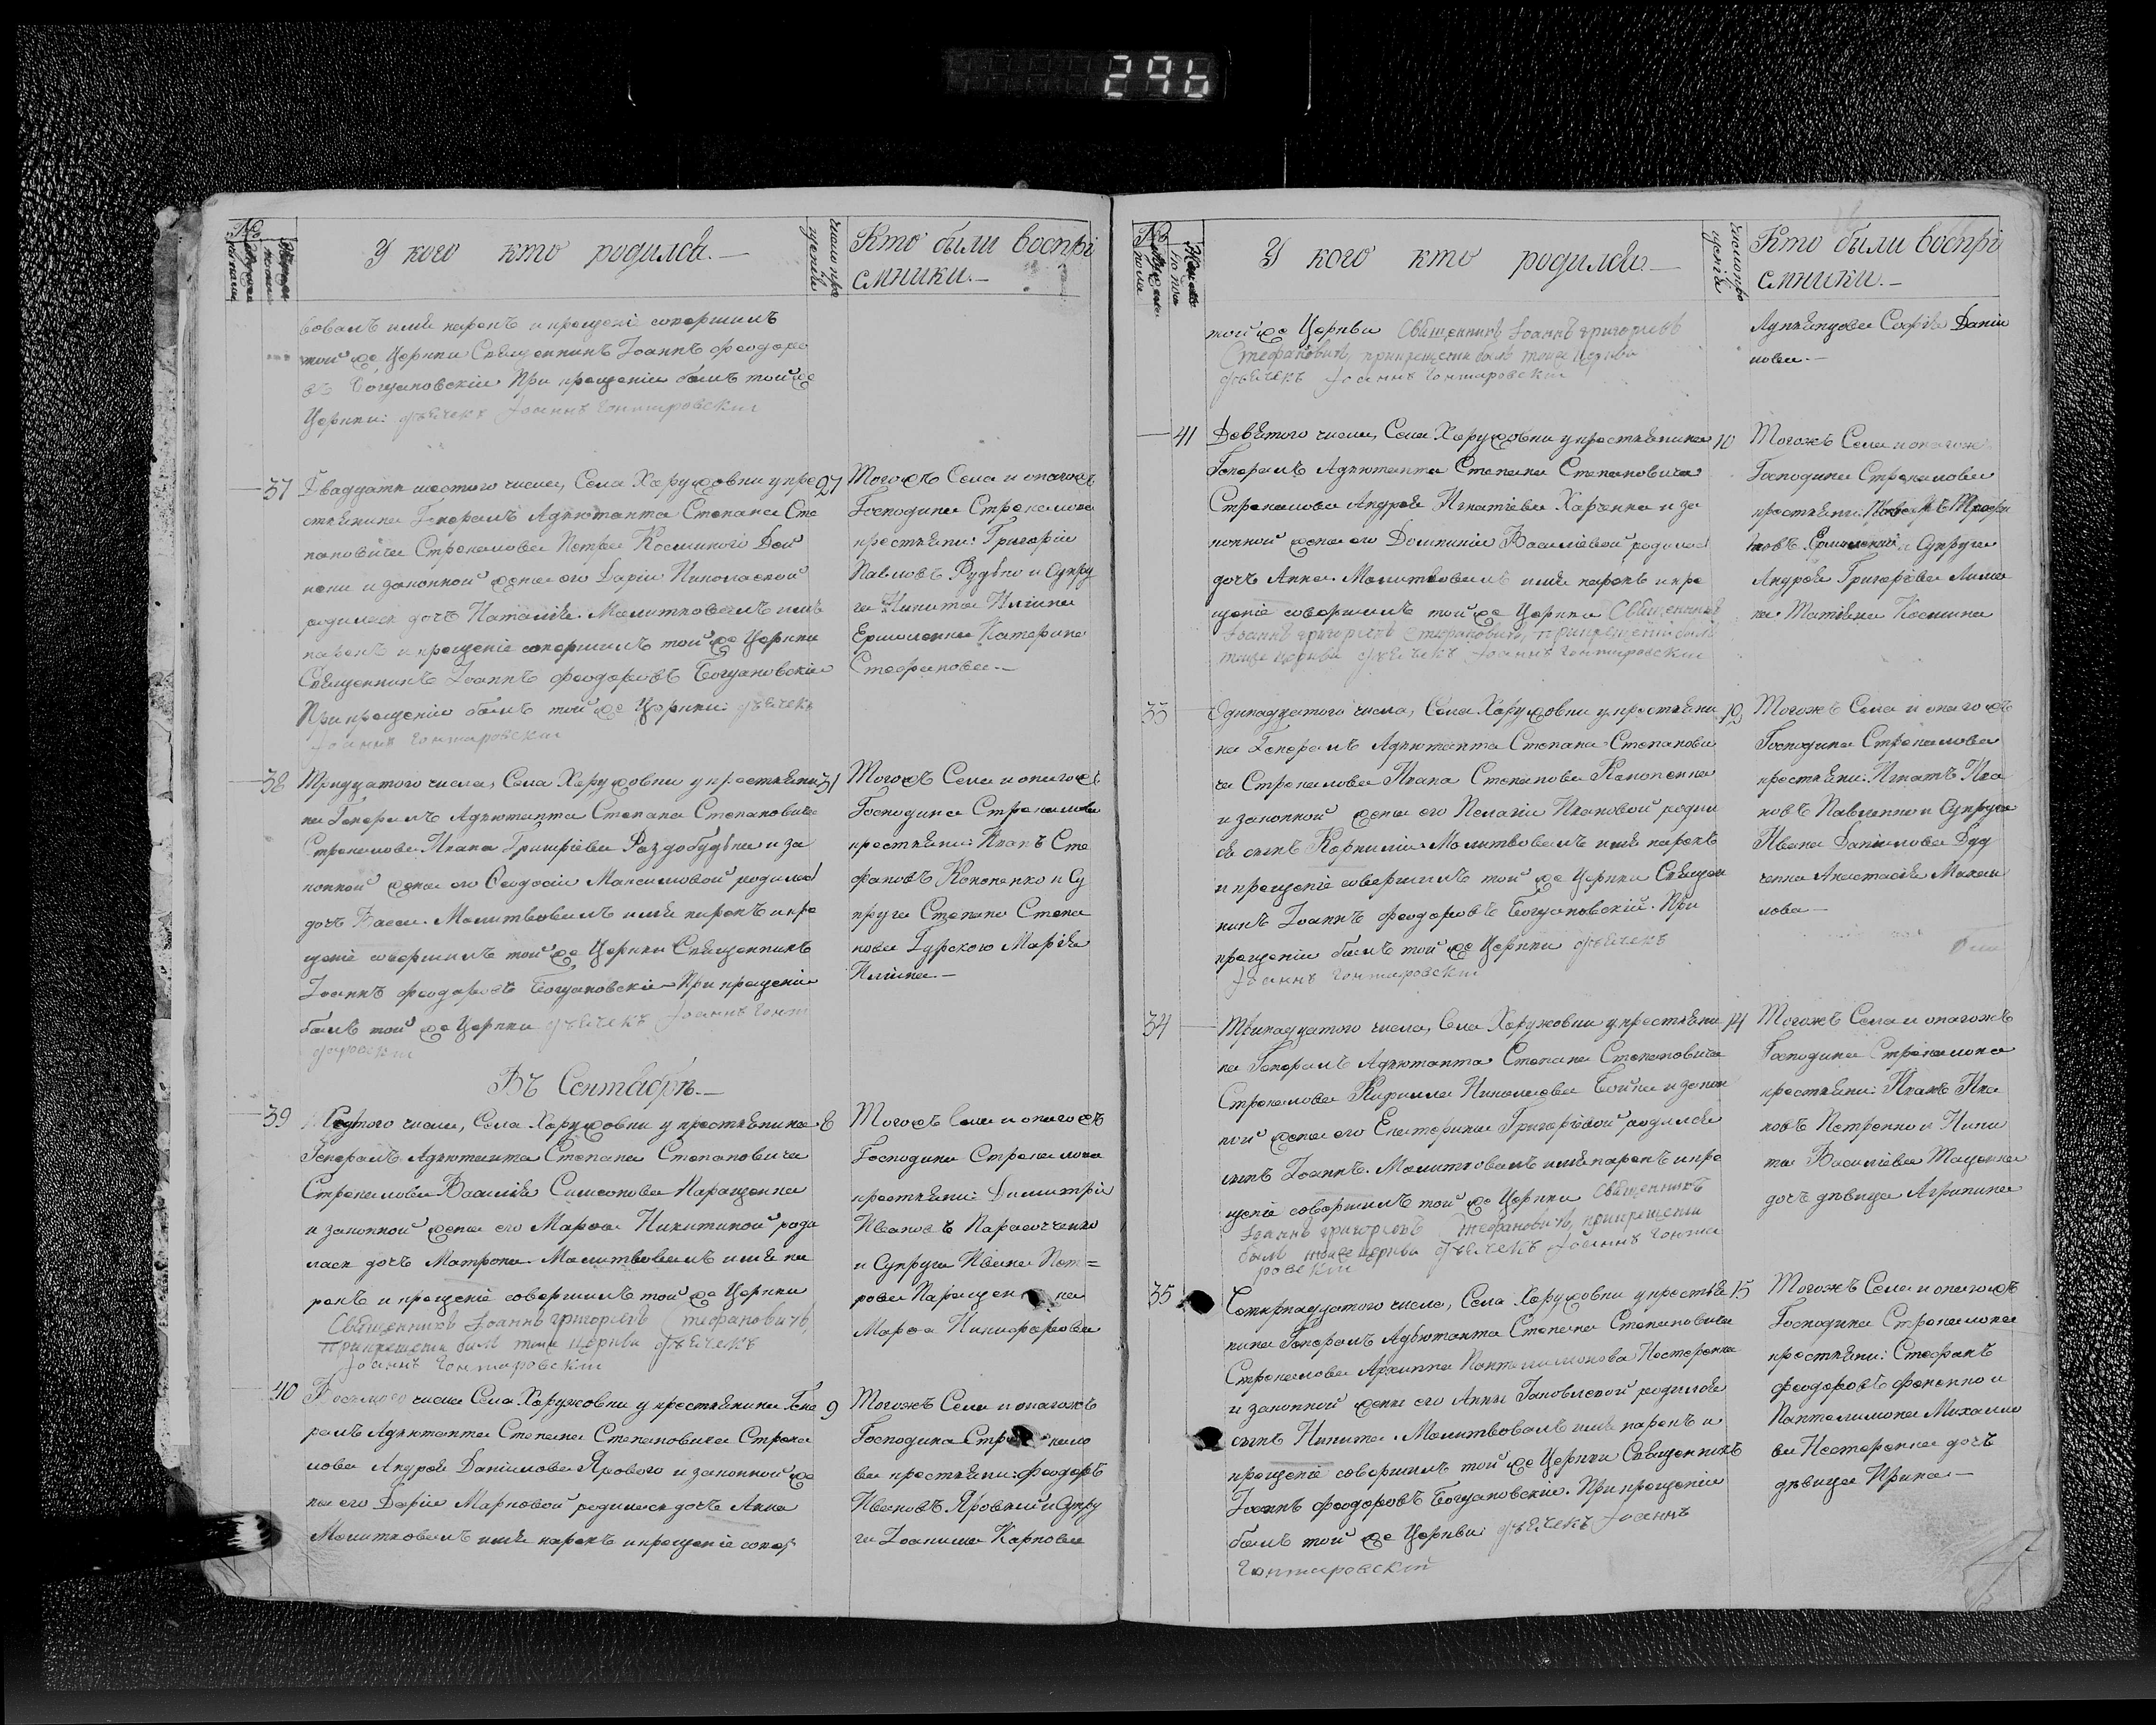 296
№
У кого кто родился.—
число кре
щенія
Кто были воспрі
емники.—
вовалъ имя нарекъ и крещеніе совершилъ
той же Церкви Священникъ Іоаннъ Феодоро
въ Богдановскій При крещеніи былъ той же
Церкви: дьячекъ Іоаннъ Гонтаровскій
37 Двадцати шестого числа, Села Хоружовки у кре 27
стьянина Генералъ Адъютанта Степана Сте
пановича Стрекалова Петра Космина
и законной жены его Даріи Николаевой
родилась дочь Наталія. Молитвовалъ имя
нарекъ и крещеніе совершилъ той же Церкви
Священникъ Іоаннъ Феодоровъ Богдановскій
При крещеніи былъ той же Церкви: дьячекъ
Іоаннъ Гонтаровскій
Тогожъ Села и онагожъ
Господина Стрекалова
крестьяни: Григорій
Павловъ Рудько и Супру
га Никиты Ильина
Ермоленка Катерина
Стефанова.—
38 Тридцатого числа, Села Хоружовки у крестьяни 31
на Генералъ Адъютанта Степана Степановича
Стрекалова Ивана Григоріева Раздобудька и за
конной жены его Феодосіи Максимовой родилась
дочь Васса. Молитвовалъ имя нарекъ и кре
щеніе совершилъ той же Церкви Священникъ
Іоаннъ Феодоровъ Богдановскій При крещеніи
былъ той же Церкви дьячекъ Іоаннъ Гонта
ровскій
Тогожъ Села и онагожъ
Господина Стрекалова
крестьяни: Иванъ Сте
фановъ Кононенко и Су
пруга Степана Степа
нова Гурского Марія
Ильина.—
Въ Сентябрѣ.—
39 Седмого числа, Села Хоружовки у крестьянина 8
Генералъ Адъютанта Степана Степановича
Стрекалова Василія Симеонова Паращенка
и законной жены его Марфы Никитиной роди
лась дочь Матрона. Молитвовалъ имя на
рекъ и крещеніе совершилъ той же Церкви
Священникъ Іоаннъ Григорьевъ Стефановичъ,
При крещеніи былъ тойже Церкви дьячекъ
Іоаннъ Гонтаровскій
Тогожъ Села и онагожъ
Господина Стрекалова
крестьяни: Димитрій
Ивановъ
и Супруга Ивана Пет=
рова Паращенка
Марфа Никифорова
40 Восьмого числа Села Хоружовки у крестьянина Гене 9
ралъ Адъютанта Степана Степановича Стрека
лова Андрея Данилова Ярового и законной же
ны его Даріи Марковой родилась дочь Анна
Молитвовалъ имя нарекъ и крещеніе совер
Тогожъ Села и онагожъ
Господина Стрекало
ва крестьяни: Феодоръ
Ивановъ Яровый и Супру
га Карпова
№
У кого кто родился.—
число кре
щенія
Кто были воспрі
емники.—
той же Церкви Священникъ Іоаннъ Григорьевъ
Стефановичъ, при крещеніи былъ тойже Церкви
дьячекъ Іоаннъ Гонтаровскій
Софія Дании
лова.—
41 Девятого числа, Села Хоружовки у крестьянина 10
Генералъ Адъютанта Степана Степановича
Стрекалова Андрея Игнатіева Харченка и за
конной жены его Домникіи Василіевой родилась
дочь Анна. Молитвовалъ имя нарекъ и кре
щеніе совершилъ той же Церкви Священникъ
Іоаннъ Григорьевъ Стефановичъ, при крещеніи былъ
тойже Церкви дьячекъ Іоаннъ Гонтаровскій
Тогожъ Села и онагожъ
Господина Стрекалова
крестьяни:
и Супруга
Андрея Григоріева
Татіана Космина
33 Одинадцатого числа, Села Хоружовки у крестьяни
на Генералъ Адъютанта Степана Степанови
ча Стрекалова Ивана Степанова Кононенка
и законной жены его Пелагіи Ивановой роди
ся сынъ Корнилій. Молитвовалъ имя нарекъ
и крещеніе совершилъ той же Церкви Священ
никъ Іоаннъ Феодоровъ Богдановскій. При
крещеніи былъ той же Церкви дьячекъ
Іоаннъ Гонтаровскій
Тогожъ Села и онагожъ
Господина Стрекалова
крестьяни: Игнатъ Ива
новъ Павленко и Супруга
Ивана Данилова Дуд
ченка Анастасія Михаи
лова—
34 Тринадцатого числа, Села Хоружовки у крестьяни 14
на Генералъ Адъютанта Степана Степановича
Стрекалова Кирилла Николаева Бойка и закон
ной жены его Екатерины Григоріевой родился
сынъ Іоаннъ. Молитвовалъ имя нарекъ и кре
щеніе совершилъ той же Церкви Священникъ
Іоаннъ Григорьевъ Стефановичъ, при крещеніи
былъ тойже Церкви дьячекъ Іоаннъ Гонта
ровскій
Тогожъ Села и онагожъ
Господина Стрекалова
крестьяни: Иванъ Ива
новъ Петренко и Ники
ты Василіева Таценка
дочь дѣвица Агрипина
35 Четырнадцатого числа, Села Хоружовки у крестья 15
нина Генералъ Адъютанта Степана Степановича
Стрекалова Архиппа Пантелимонова Нестеренка
и законной жены его Анны Іаковлевой родился
сынъ Никита. Молитвовалъ имя нарекъ и
крещеніе совершилъ той же Церкви Священникъ
Іоаннъ Феодоровъ Богдановскій. При крещеніи
былъ той же Церкви: дьячекъ Іоаннъ
Гонтаровскій
Тогожъ Села и онагожъ
Господина Стрекалова
крестьяни: Стефанъ
Феодоровъ Фененко и
Пантелимона Михаило
ва Нестеренка дочь
дѣвица Ирина—